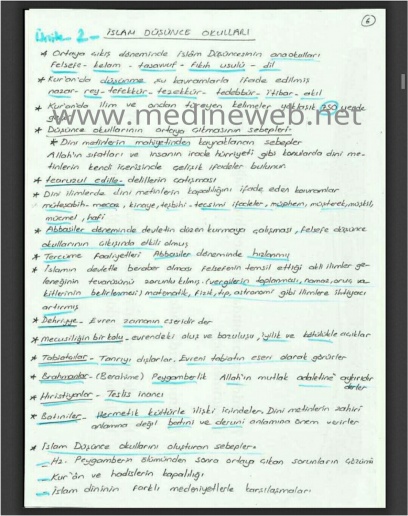 6
Ünite 2 - İSLAM DÜŞÜNCE OKULLARI
* Ortaya çıkış döneminde İslâm Düşüncesinin ana okulları
Felsefe - kelam - tasavvuf - fıkıh usulü - dil
* Kur'an'da düşünme şu kavramlarla ifade edilmiş
nazar - rey - tefekkür - tezekkür - tedebbür - itibar - akıl
* Kur'an'da ilim ve ondan türeyen kelimeler yaklaşık 750 yerde
www.medineweb.net
* Düşünce okullarının ortaya çıkmasının sebepleri
* Dini metinlerin mahiyetinden kaynaklanan sebepler
Allah'ın sıfatları ve insanın irade hürriyeti gibi konularda dini me-
tinlerin kendi içerisinde çelişik ifadeler bulunur.
* tearuzul edille - delillerin çatışması
* Dini ilimlerde dini metinlerin kapalılığını ifade eden kavramlar
müteşabih - mecaz, kinaye, teşbihi - tecsimi ifadeler, müphem, müşterek, müşkil,
mücmel, hafi
* Abbasiler döneminde devletin düzen kurmaya çalışması, felsefe düşünce
okullarının çıkışında etkili olmuş
* Tercüme faaliyetleri Abbasiler döneminde hızlanmış
* İslamın devletle beraber olması felsefenin temsil ettiği akli ilimler ge-
leneğinin tevarüsünü sorunlu kılmış (vergilerin toplanması, namaz, oruç va-
kitlerinin belirlenmesi) matematik, fizik, tıp, astronomi gibi ilimlere ihtiyacı
artırmış
* Dehriyye - Evren zamanın eseridir der
* Mecusiliğin bir kolu, evrendeki oluş ve bozuluşu, iyilik ve kötülükle açıklar
* Tabiatçılar - Tanrıyı dışlarlar. Evreni tabiatın eseri olarak görürler
* Brahmanlar - (Berahime) Peygamberlik Allah'ın mutlak adaletine aykırıdır
derler
* Hıristiyanlar - Teslis inancı
* Batıniler - Hermetik kültürle ilişki içindeler. Dini metinlerin zahiri
anlamına değil batıni ve deruni anlamına önem verirler
* İslam Düşünce okullarını oluşturan sebepler
- Hz. Peygamberin ölümünden sonra ortaya çıkan sorunların çözümü
- Kur'ân ve hadislerin kapalılığı
- İslam dininin farklı medeniyetlerle karşılaşmaları